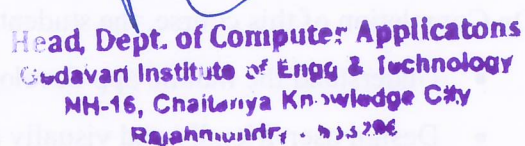 Head, Dept. of Computer Applicatons
Godavari Institute of Engg & Technology
NH-16, Chaitanya Knowledge City
Rajahmundry -